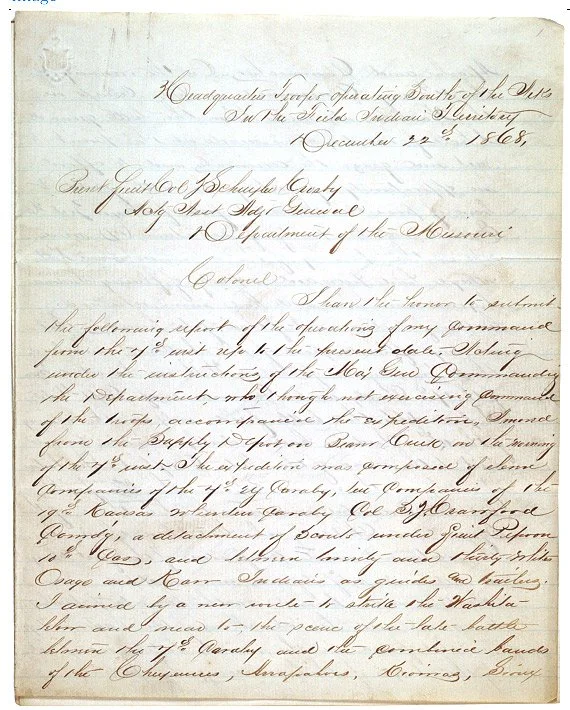 Headquarters Troops operating South of the Arks
In the Field Indian Territory
December 22d 1868,
Brevt Lieut Col J Schuyler Crosby
Actg Asst Adjt General
Department of the Missouri
Colonel
I have the honor to submit
the following report of the operations of my command
from the 7th inst up to the present date. Acting
under the instructions of the Maj Genl Commanding
the Department who though not exercising command
of the troops, accompanied the expedition, I moved
from the Supply Depot on Beaver Creek, on the morning
of the 7th inst. The expedition was composed of eleven
Companies of the 7th US Cavalry, ten Companies of the
19th Kansas Volunteer Cavalry Col S. J. Crawford
Comdg, a detachment of Scouts under Lieut Pepoon
10th Cav, and between twenty and thirty whites
Osage and Kaw Indians as guides and trailers.
I aimed by a new route to strike the Washita
below and near to the scene of the late battle
between the 7th Cavalry and the combined bands
of the Cheyennes, Arrapahos, Kiowas, Sioux